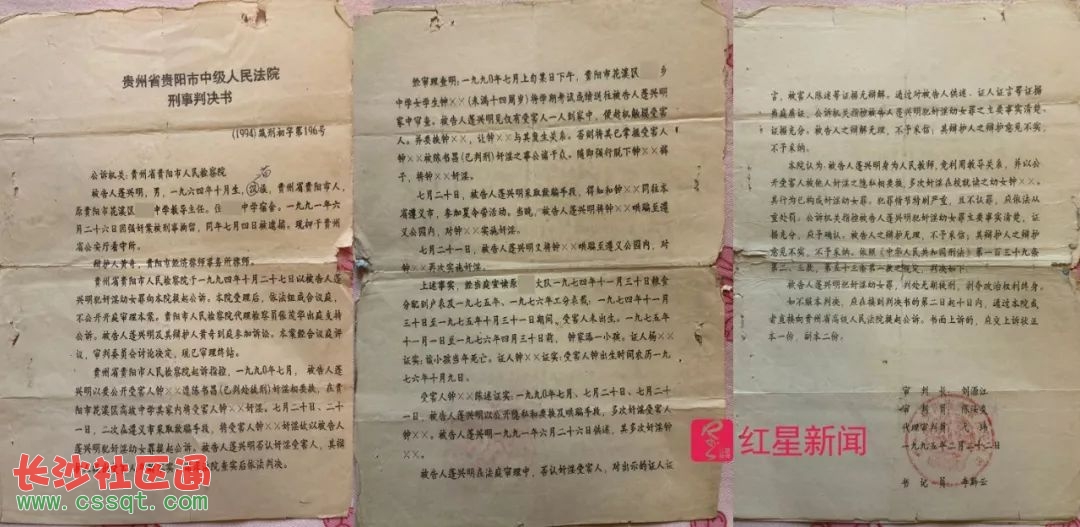 贵州省贵阳市中级人民法院
刑事判决书
(1994)筑刑初字第196号
公诉机关:贵州省贵阳市人民检察院
被告人蓬兴明,男,一九六四年十月生,汉族,贵州省贵阳市人,
苗
原贵阳市花溪区 中学教导主任。住 中学宿舍。一九九一年六
月二十六日因强奸案被刑事拘留,同年 月四日被逮捕。现押于贵州
省公安厅看守所。
辩护人黄奇,贵阳市经济律师事务所律师。
贵州省贵阳市人民检察院于一九九四年十月二十七以被告人蓬
兴明犯奸淫幼女罪向本院提起公诉。本院受理后,依法组成合议庭,
不公开开庭审理本案。贵阳市人民检察院代理检察员张 出庭支持
公诉。被告人蓬兴明及其辩护人黄奇到庭参加诉讼。本案经合议庭评
议,审判委员会讨论决定,现已审理终结。
贵州省贵阳市人民检察院起诉指控,一九九〇年七月,被告人蓬
兴明以要公开受害人钟××遭陈书昌(已判处徒刑)奸淫相要挟,在贵
阳市花溪区高坡中学其家内将受害人钟××奸淫。七月二十日、二十
一日,二次在遵义市采取欺骗手段,将受害人钟××奸淫故以被告人
蓬兴明犯奸淫幼女罪提起公诉。被告人蓬兴明否认奸淫受害人,其辩
院查实后依法判决。
经审理查明:一九九〇年七月上旬某日下午,贵阳市花溪区 乡
中学女学生钟××(未满十四周岁)将学期考试成绩送往被告人蓬兴明
家中审查。被告人蓬兴明见仅有受害人一人到家中,便趁机触摸受害
人。并要挟钟××,让钟××与其发生关系。否则将其已掌握受害人
钟××被陈书昌(已判刑)奸淫之事公诸于众。随即强行脱下钟××裤
子,将钟××奸淫。
七月二十日,被告人蓬兴明采取欺骗手段,得知和钟××同往本
省遵义市,参加夏令营活动。当晚,被告人蓬兴明将钟××哄骗至遵义
公园内,对钟××实施奸淫。
七月二十一日,被告人蓬兴明又将钟××哄骗至遵义公园内,对
钟××再次实施奸淫。
上述事实,经当庭宣读原 大队一九七四年十一月三十日粮食
分配到户表及一九七五年、一九七六年工分表,一九七四年十一月
三十日至一九七五年十月三十一日期间,受害人未出生。一九七五年
十一月一日至一九七六年四月三十日前,钟家添一小孩。证人杨××
证实:该小孩当年死亡。证人钟××证实:受害人钟出生时间农历一九
七六年十月九日。
受害人钟××陈述证实:一九九〇年七月、七月二十日、七月二十
一日,被告人蓬兴明以公开隐私相要挟及哄骗手段,多次奸淫受害人
钟××。被告人蓬兴明一九九一年六月二十六日供述,其多次奸淫钟
××。
被告人蓬兴明在法庭审理中,否认奸淫受害人,对出示的证人证
言,被害人陈述等证据无辩解。通过对被告人供述、证人证言等证据
当庭质证,公诉机关指控被告人蓬兴明犯奸淫幼女罪之主要事实清楚,
证据充分。被告人之辩解无理,不予采信;其辩护人之辩护意见不实,
不予采纳。
本院认为:被告人蓬兴明身为人民教师,竟利用教导关系,并以公
开受害人被他人奸淫之隐私相要挟,多次奸淫在校就读之幼女钟××。
其行为已构成奸淫幼女罪。犯罪情节特别严重,且不认罪,应依法从
重处罚。公诉机关指控被告人蓬兴明犯奸淫幼女罪主要事实清楚,证
据充分,应予确认。被告人之辩解无理,不予采信;其辩护人之辩护
意见不实,不予采纳。依照《中华人民共和国刑法》第一百三十九条
第二、三款,第五十三条第一款之规定,判决如下:
被告人蓬兴明犯奸淫幼女罪,判处无期徒刑,剥夺政治权利终身。
如不服本判决,应在接到判决书的第二日起十日内,通过本院或
者直接向贵州省高级人民法院提起公诉。书面上诉的,应交上诉状正
本一份,副本二份。
审判长 刘源江
审判员
代理审判员
一九九五年二月二十二日
书记员 李黔云
红星新闻
长沙社区通
www.cssqt.com